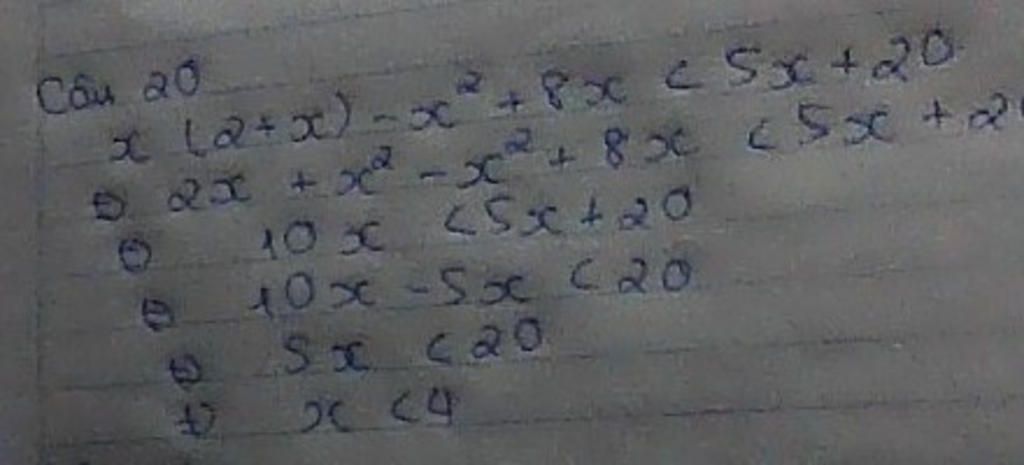 Câu 20
x (2+x) - x² + 8x < 5x + 20
⇔ 2x + x² - x² + 8x < 5x + 2
⇔ 10x < 5x + 20
⇔ 10x - 5x < 20
⇔ 5x < 20
⇔ x < 4